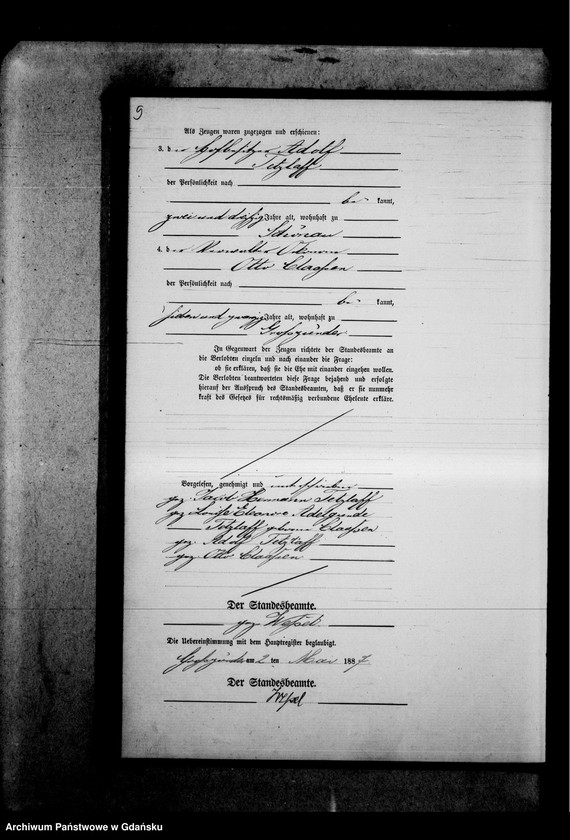 9
Als Zeugen waren zugezogen und erschienen:
3. der Hofbesitzer Adolf
Tetzlaff
der Persönlichkeit nach
be kannt,
zwei und dreißig Jahre alt, wohnhaft zu
Schönau
4. der Verwalter
Otto Claassen
der Persönlichkeit nach
be kannt,
sieben und zwanzig Jahre alt, wohnhaft zu
In Gegenwart der Zeugen richtete der Standesbeamte an
die Verlobten einzeln und nach einander die Frage:
ob sie erklären, daß sie die Ehe mit einander eingehen wollen.
Die Verlobten beantworteten diese Frage bejahend und erfolgte
hierauf der Ausspruch des Standesbeamten, daß er sie nunmehr
kraft des Gesetzes für rechtmäßig verbundene Eheleute erkläre.
Vorgelesen, genehmigt und unterschrieben
gez. Hermann Tetzlaff
gez. Louise
Tetzlaff geborene Claassen
gez. Adolf Tetzlaff
gez. Otto Claassen
Der Standesbeamte.
gez. Wessel
Die Uebereinstimmung mit dem Hauptregister beglaubigt.
am 2 ten Mai 1887
Der Standesbeamte.
Wessel
Archiwum Państwowe w Gdańsku